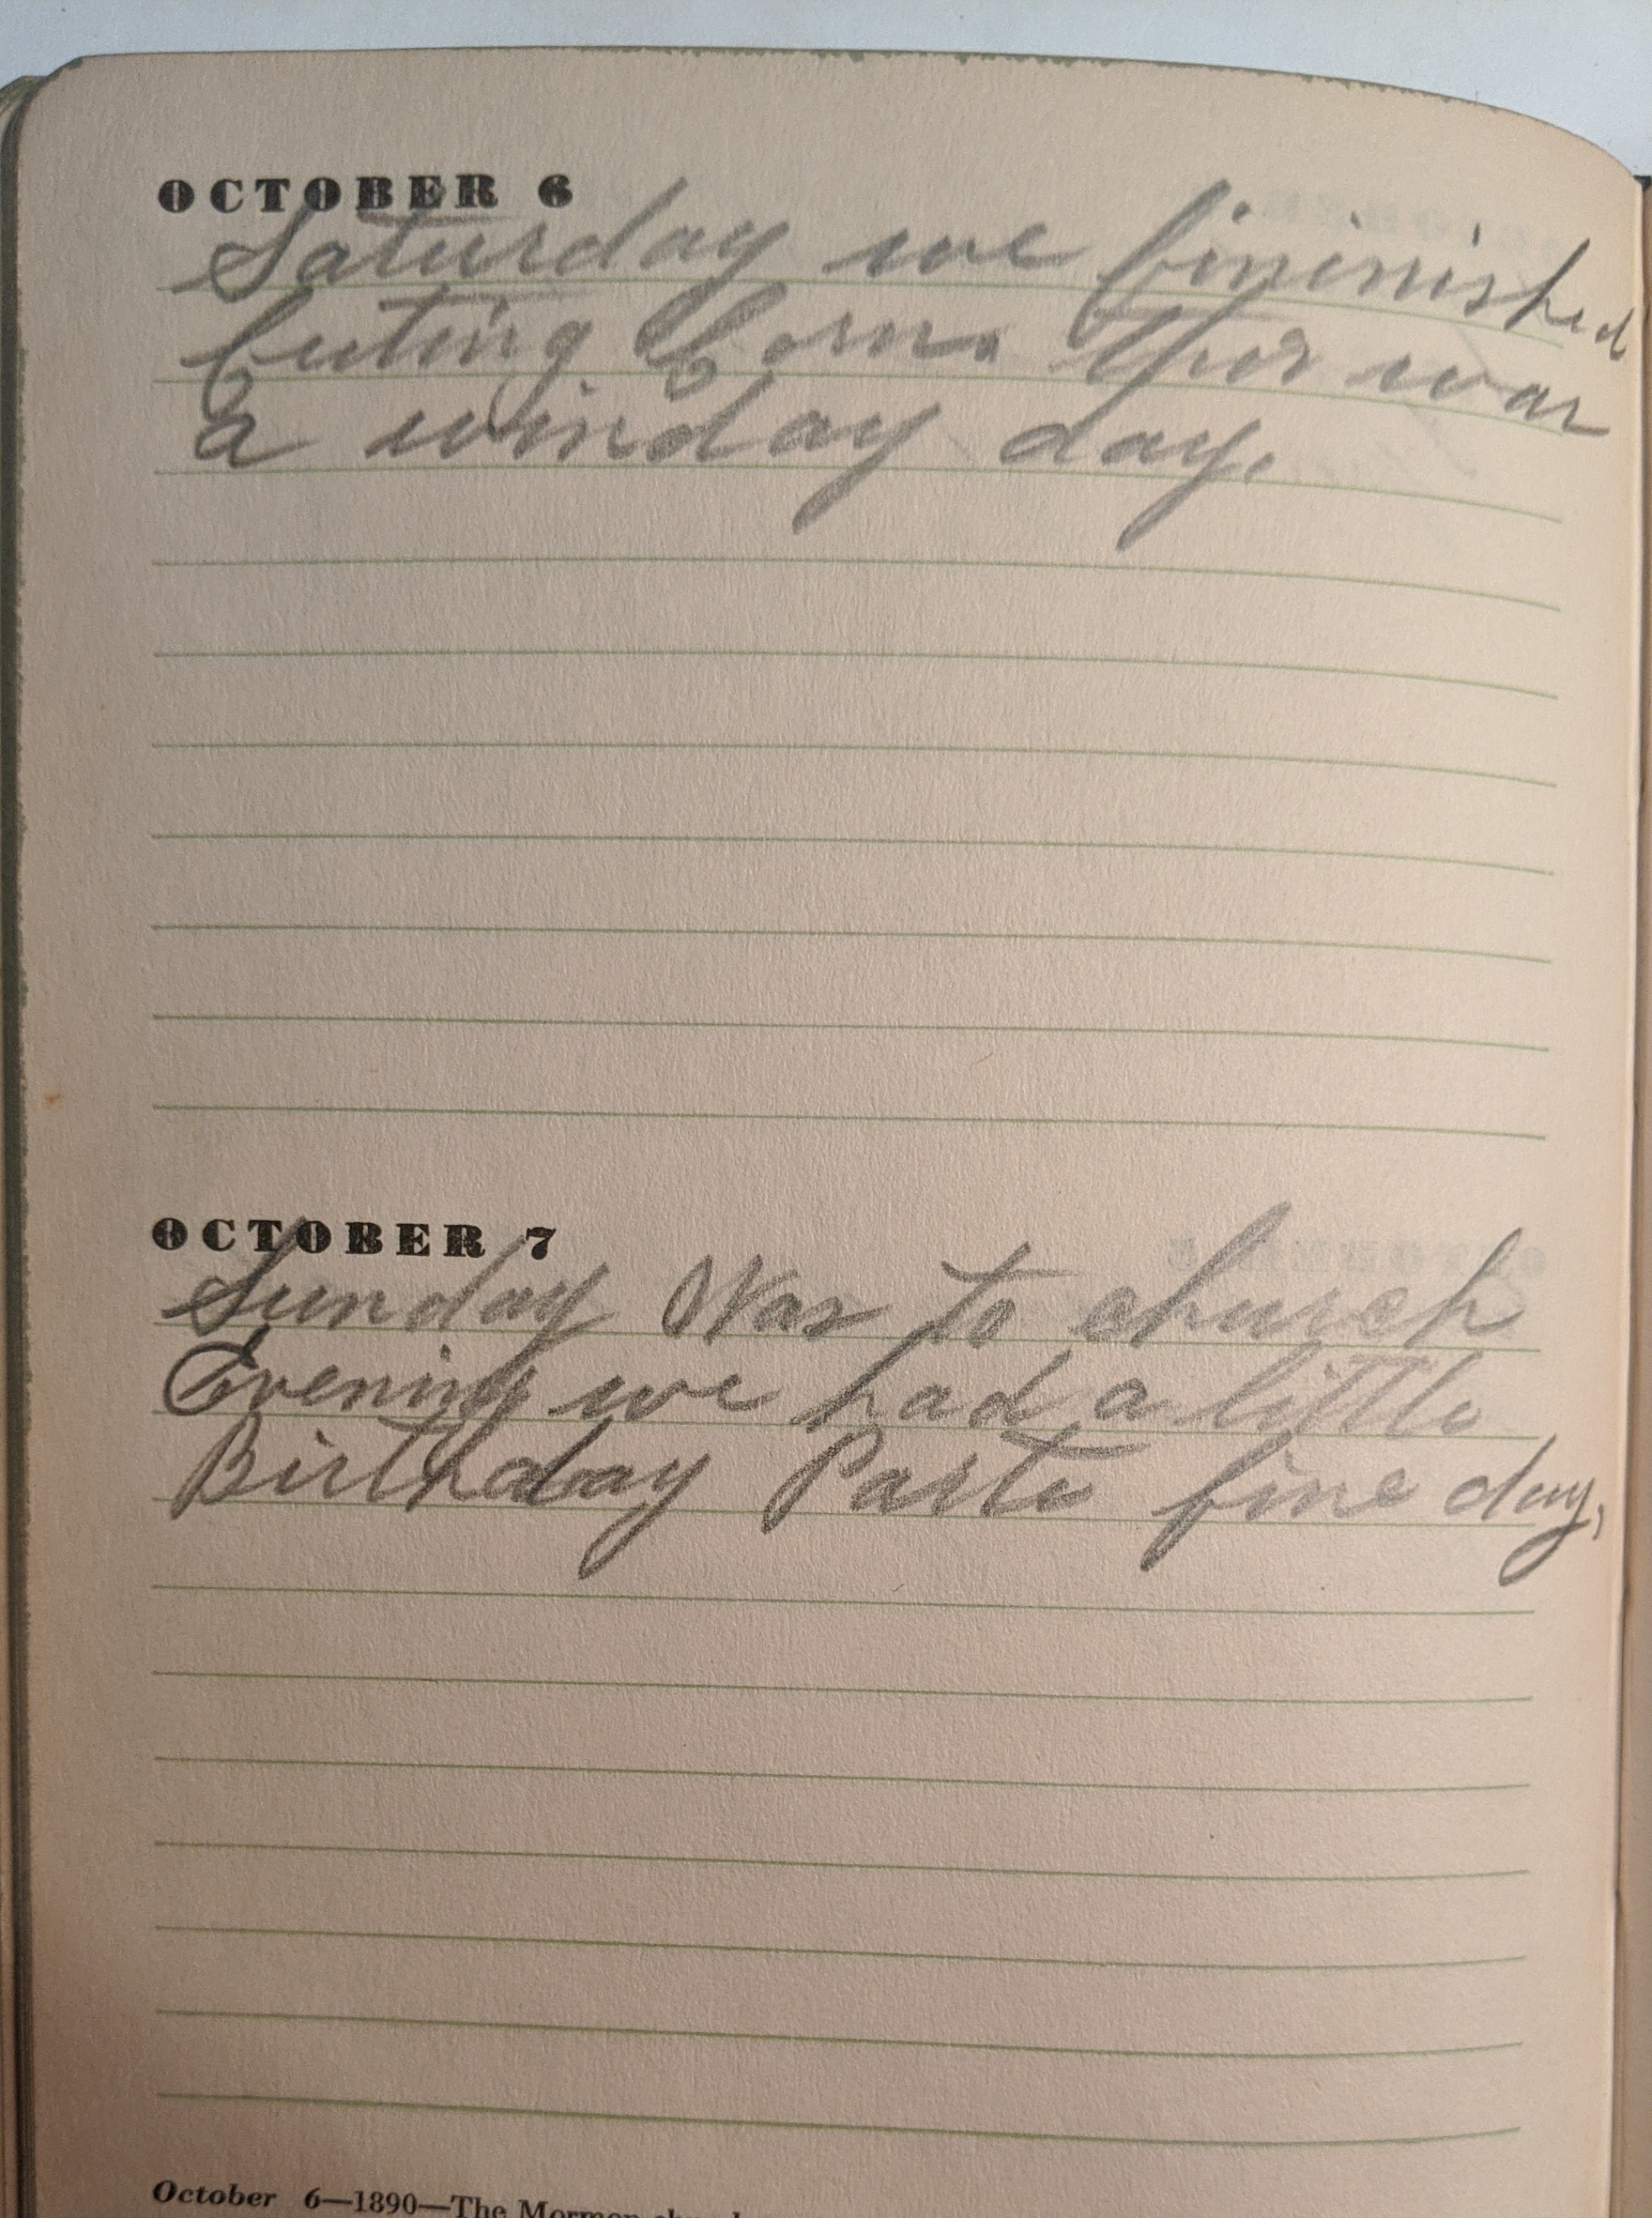 OCTOBER 6
Saturday we fininished
cuting Corn. this was
a winday day.
OCTOBER 7
Sunday Was to church
Evening we had a little
Birthday Party fine day,
October 6—1890—The Mormon